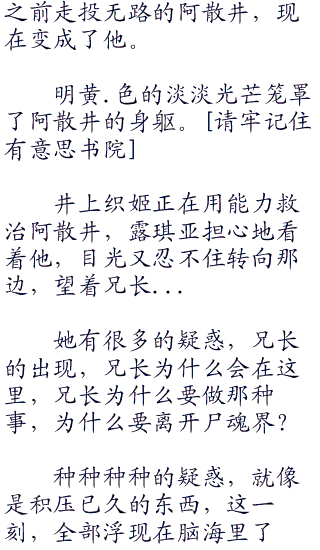 之前走投无路的阿散井，现
在变成了他。
明黄.色的淡淡光芒笼罩
了阿散井的身躯。[请牢记住
有意思书院]
井上织姬正在用能力救
治阿散井，露琪亚担心地看
着他，目光又忍不住转向那
边，望着兄长...
她有很多的疑惑，兄长
的出现，兄长为什么会在这
里，兄长为什么要做那种
事，为什么要离开尸魂界？
种种种种的疑惑，就像
是积压已久的东西，这一
刻，全部浮现在脑海里了